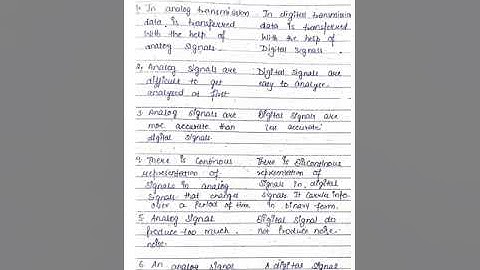 1. In analog transmission In digital transmission
data, is transferred data is transferred
with the help of With the help of
analog signals. Digital Signals.
2. Analog signals are Digital signals are
difficult to get easy to analyze.
analyzed at first
3. Analog signals are Digital Signals are
more accurate than less accurate
digital signals.
4. There is Continous There is Discontinous
representation of representation of
signals in analog Signals in, digital
Signals that changes signals It carries info
over a period of time in binary form.
5. Analog signal Digital Signal do
Produce too much not Produce noise.
noise.
6. An analog signal A digital signal